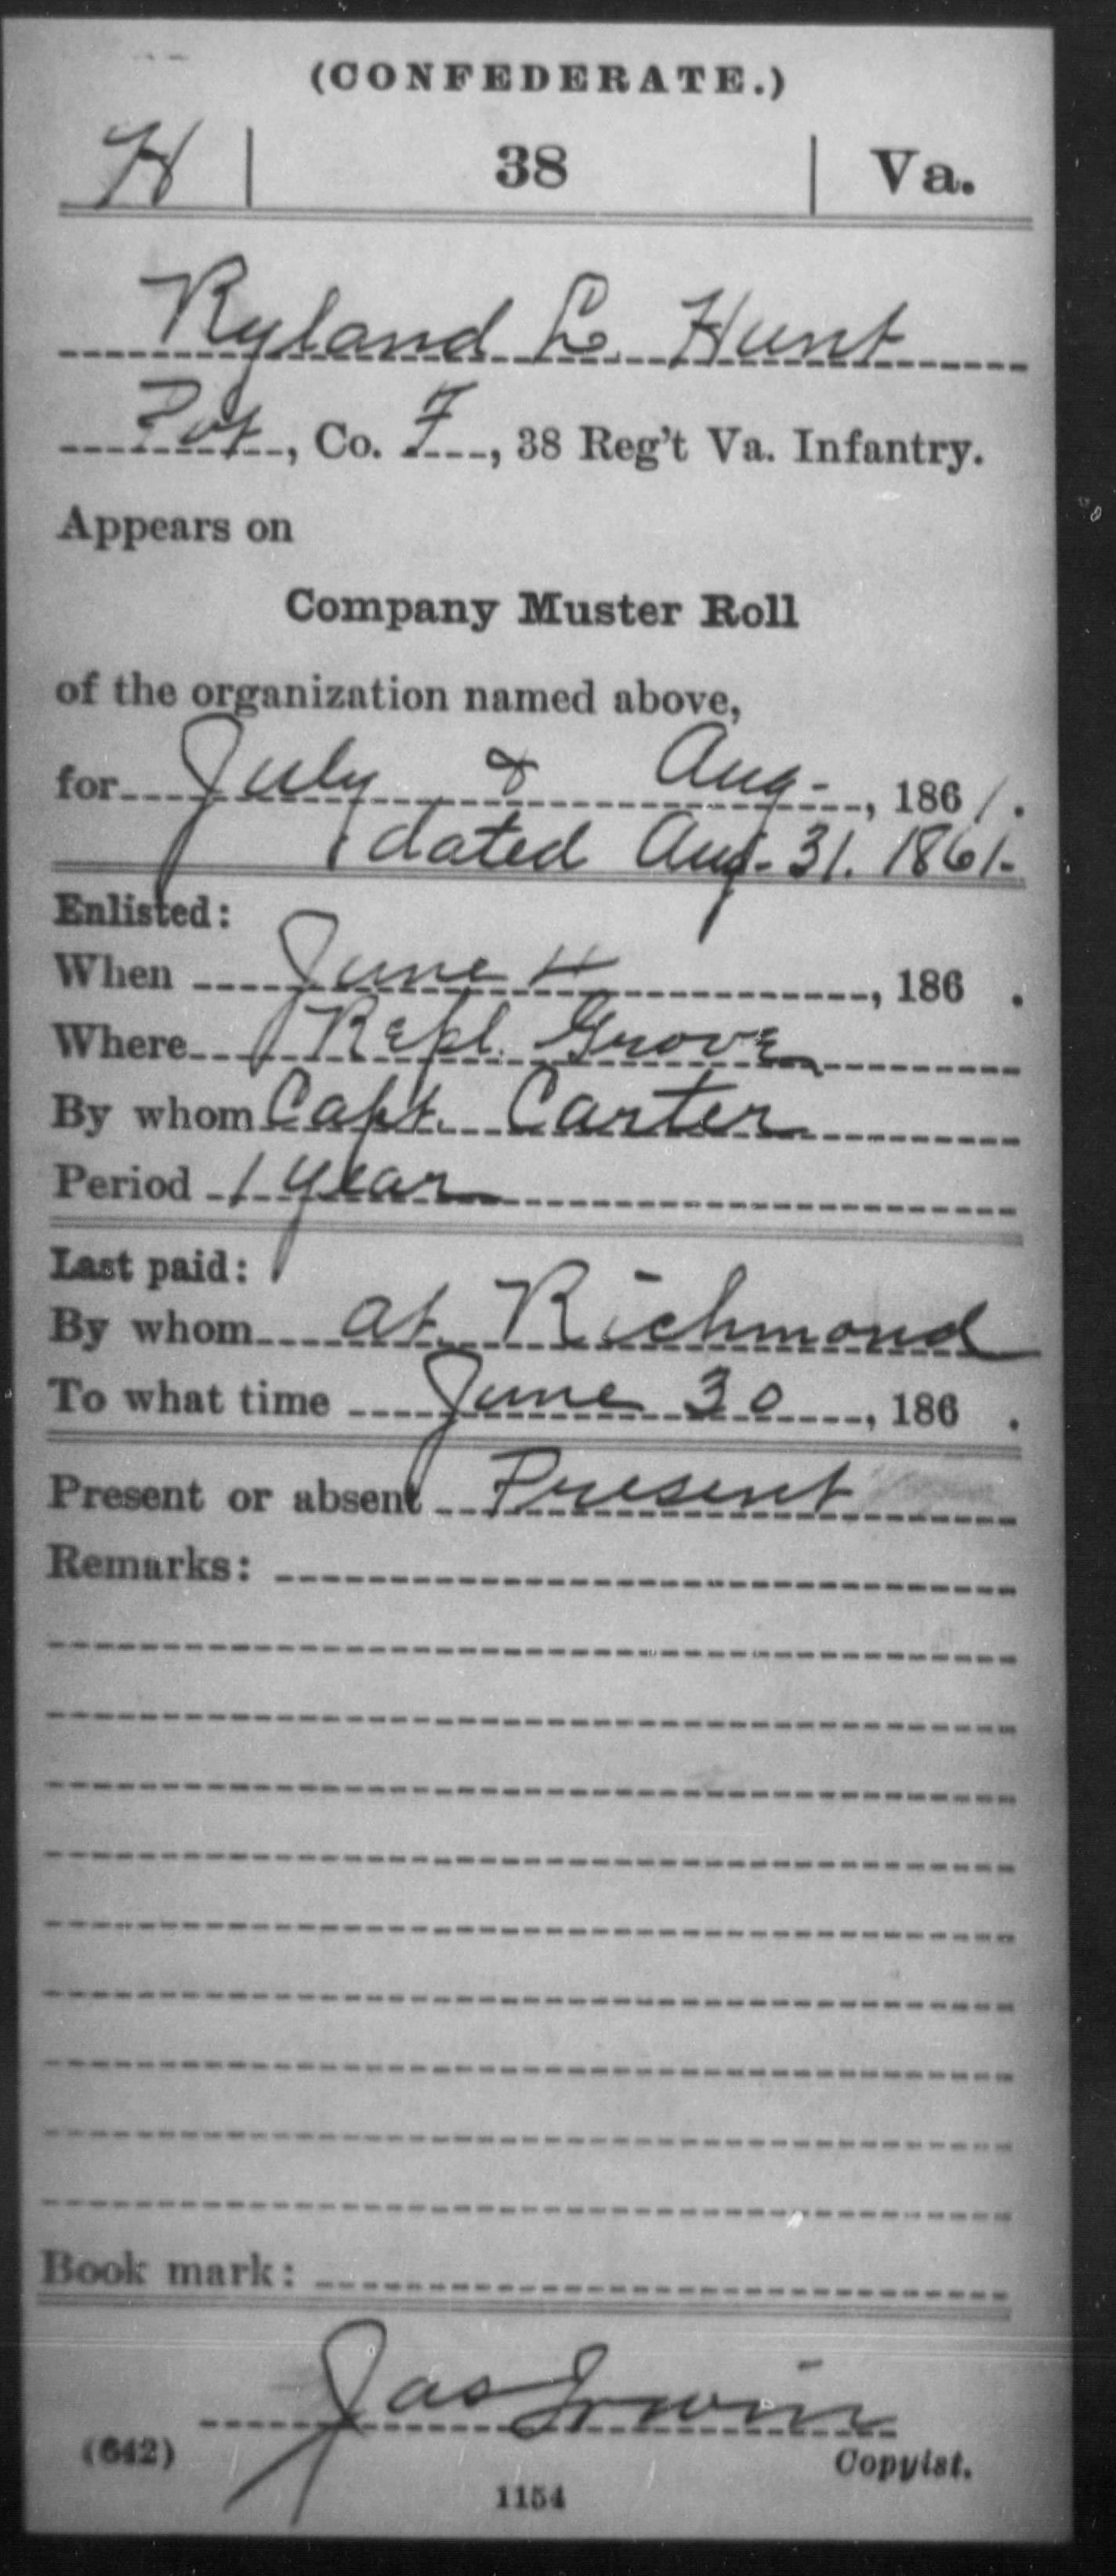 (CONFEDERATE.)
H | 38 | Va.
Ryland L. Hunt
Pvt, Co. F, 38 Reg't Va. Infantry.
Appears on
Company Muster Roll
of the organization named above,
for July & Aug., 1861.
dated Aug. 31. 1861.
Enlisted:
When June 4, 186 .
Where Repl. Grove
By whom Capt. Carter
Period 1 year
Last paid:
By whom at Richmond
To what time June 30, 186 .
Present or absent Present
Remarks:
Book mark:
Jas Irwin
(642) Copyist.
1154